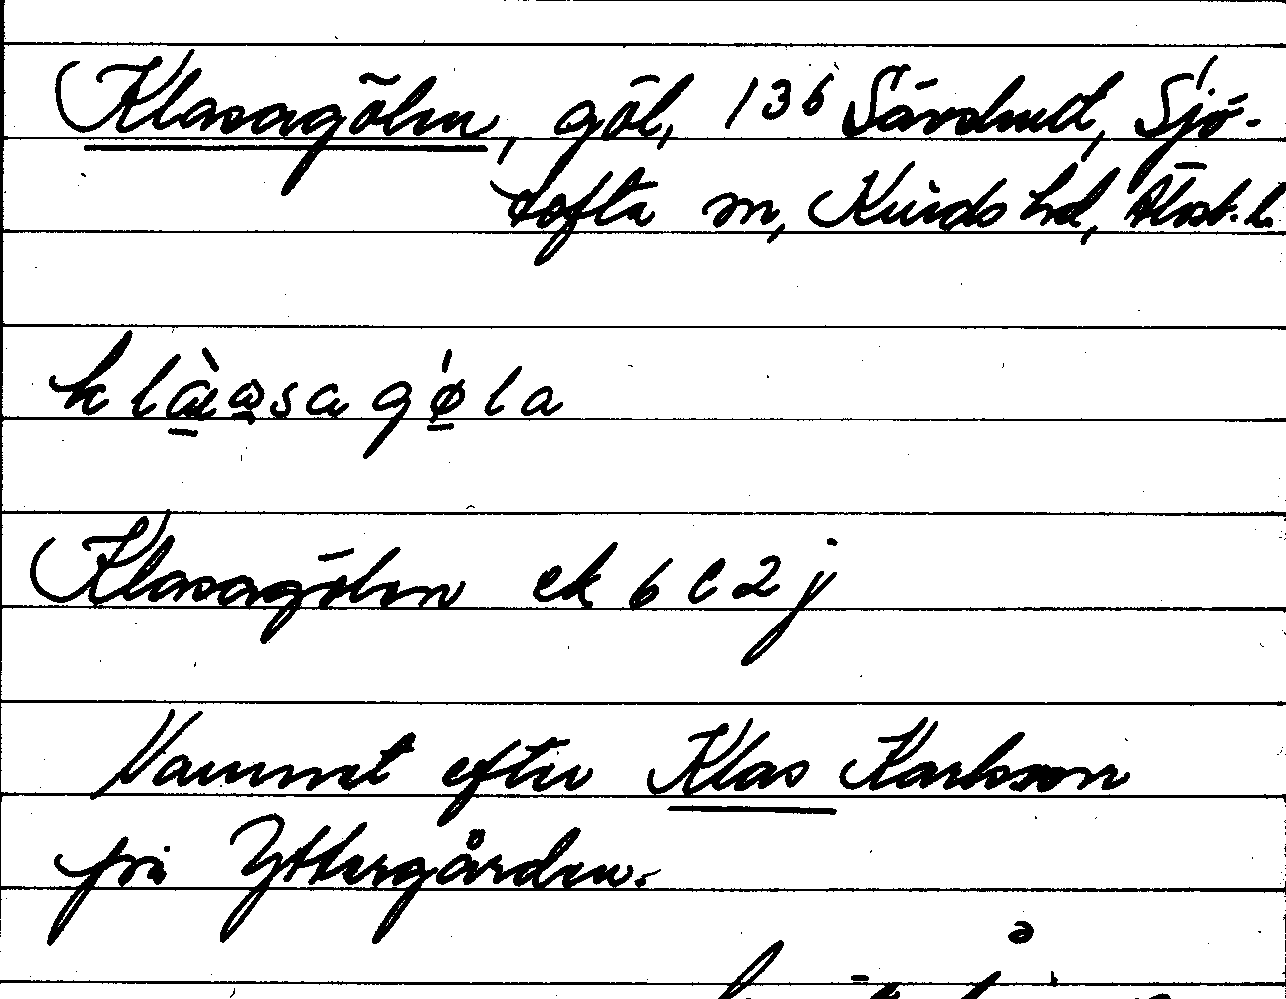 Klasagölen, göl, 136 Sävshult, Sjö-
tofta sn, Kinds hd, Älvsb. l.
klàasagǿla
Klasagölen ek 6 C 2 j
Namnet efter Klas Karlsson
på Yttergården.